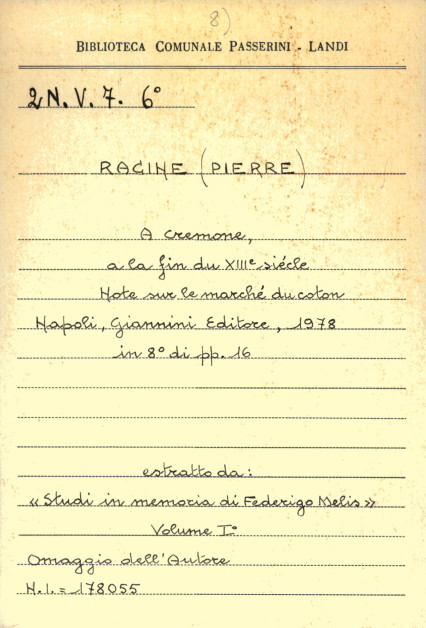 8)
BIBLIOTECA COMUNALE PASSERINI - LANDI
2N.V.7. 6°
RACINE (PIERRE)
A cremone,
a la fin du XIIIe siécle
Note sur le marché du coton
Napoli, Giannini Editore, 1978
in 8° di pp. 16
estratto da:
« Studi in memoria di Federigo Melis »
Volume I°
Omaggio dell'Autore
N.I. = 178055